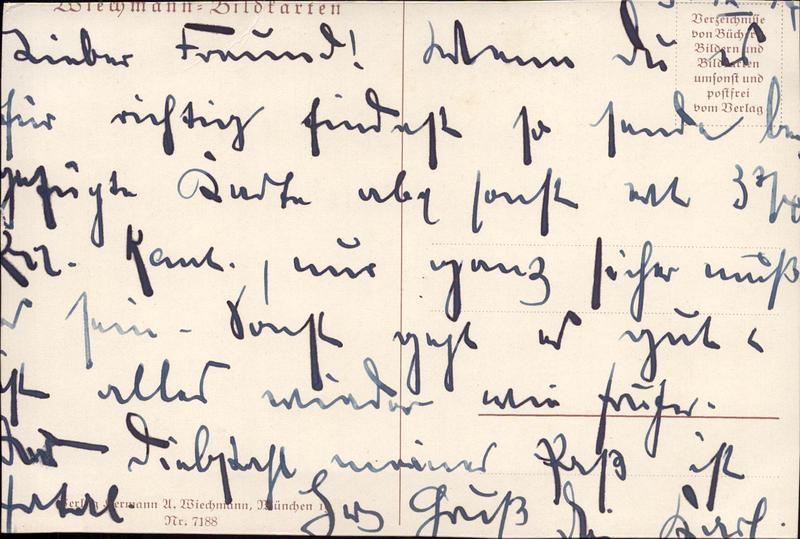 Wiechmann-Bildkarten
Verzeichnisse
von Büchern
Bildern und
Bildkarten
umsonst und
postfrei
vom Verlag
Lieber Freund! Wenn Du es
für richtig findest so sende bei
gefügte Karte ab, sonst
Kant., nur ganz sicher muß
es sein - Sonst geht es gut &
ist alles wieder wie früher.
Der Diebstahl meines Paß ist
fatal Gruß Dein Karl.
Verlag Hermann A. Wiechmann, München
Nr. 7188